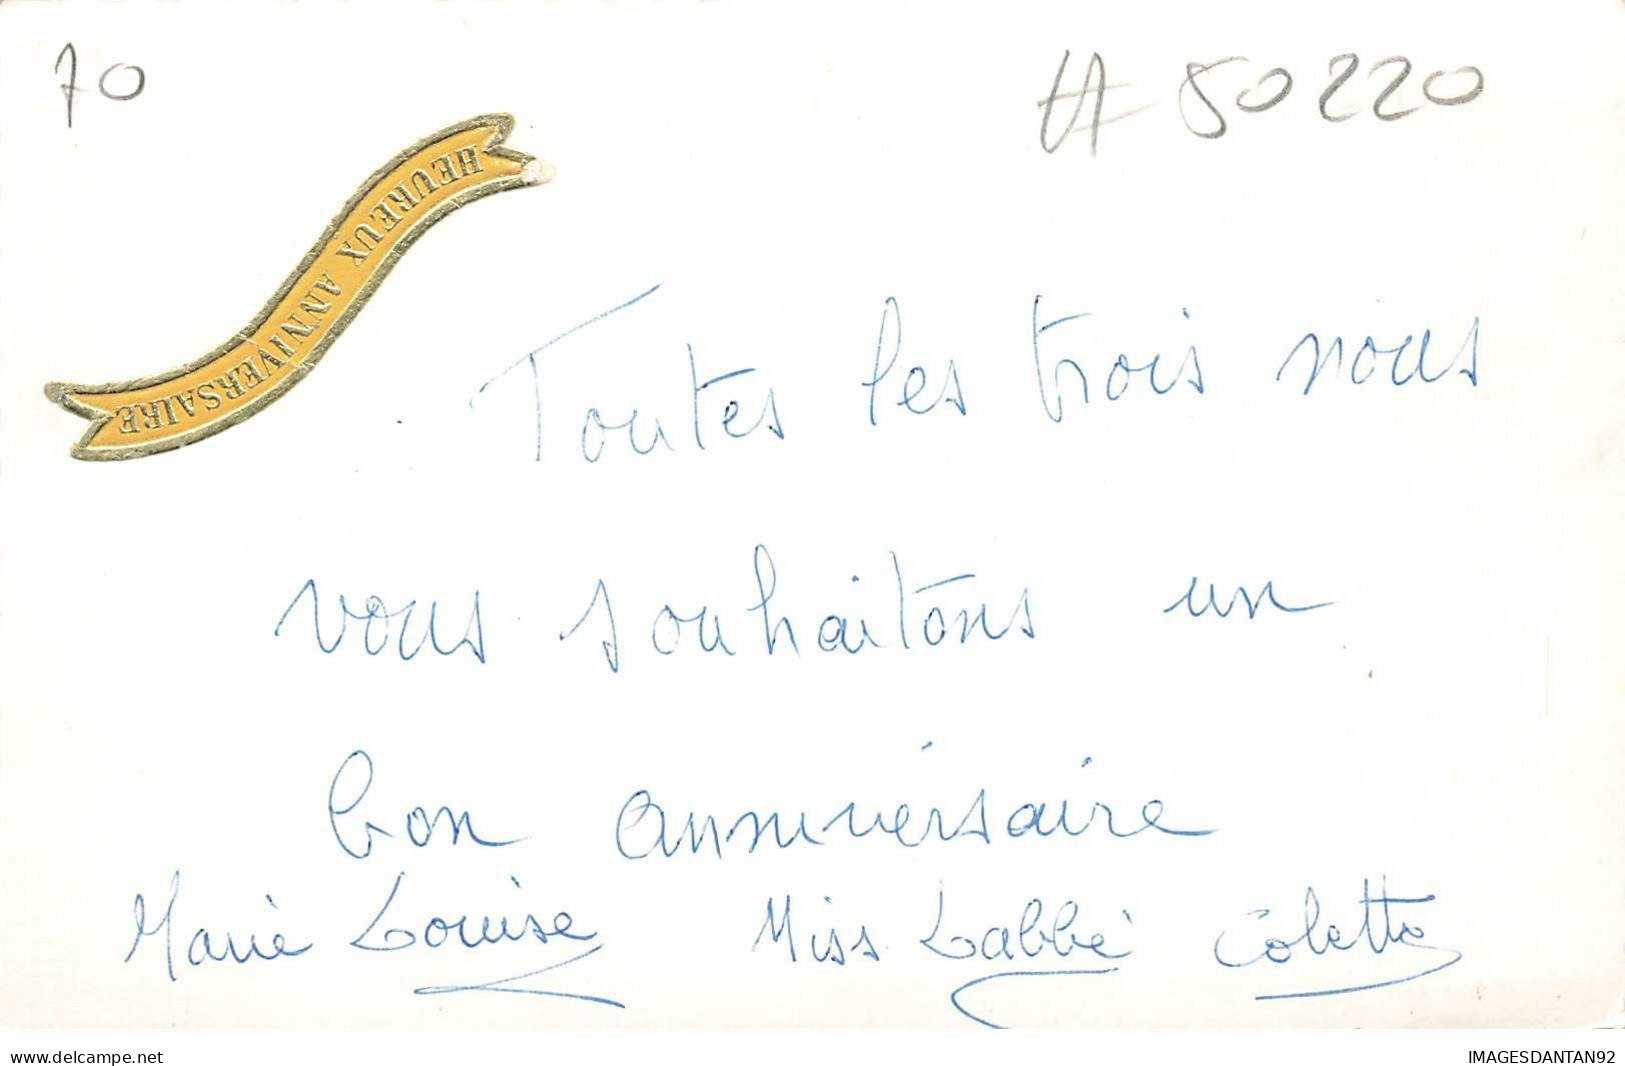 70
# 50220
HEUREUX ANNIVERSAIRE
Toutes les trois nous
vous souhaitons un
bon anniversaire
Marie Louise Miss Labbé Colette
www.delcampe.net
IMAGESDANTAN92